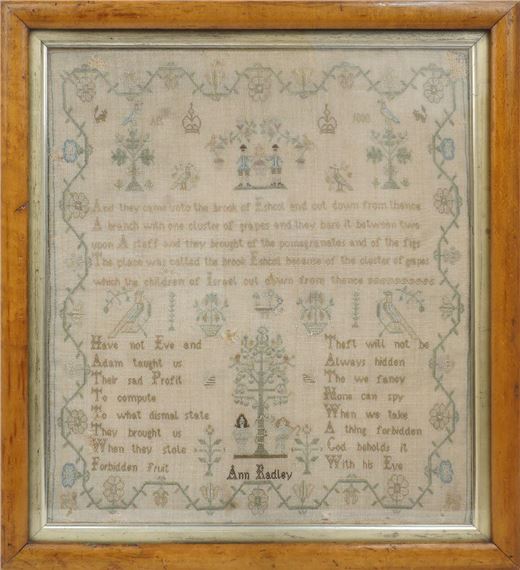 And they came unto the brook of Eshcol and cut down from thence
A branch with one cluster of grapes and they bare it between two
upon A staff and they brought of the pomegranates and of the figs
The place was called the brook Eshcol because of the cluster of grapes
which the children of Israel cut down from thence
Have not Eve and
Adam taught us
Their sad Profit
To compute
To what dismal state
They brought us
When they stole
Forbidden Fruit
Theft will not be
Always hidden
Tho we fancy
None can spy
When we take
A thing forbidden
God beholds it
With his Eye
Ann Radley